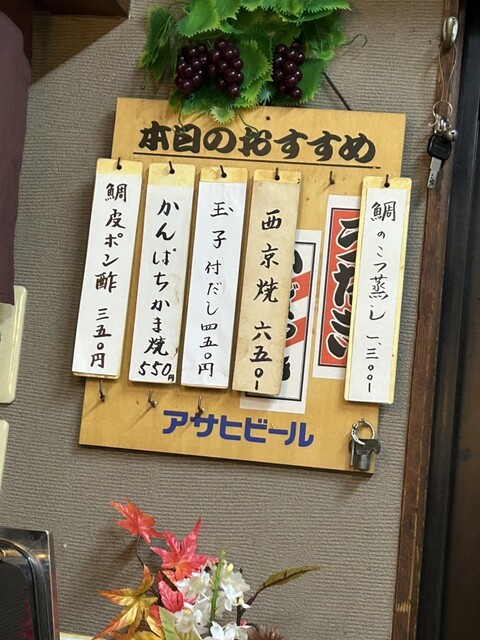 本日のおすすめ
鯛のこつ蒸し 一、三〇〇ー
西京焼 六五〇ー
玉子付だし四五〇円
かんぱちかま焼 550円
鯛皮ポン酢 三五〇円
アサヒビール